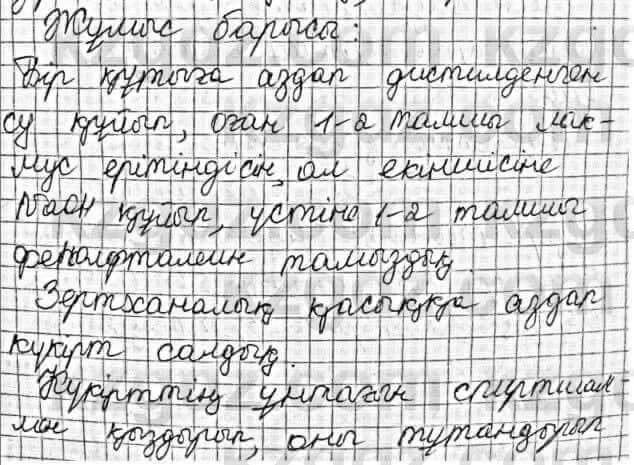 Жұмыс барысы:
Бір құтыға аздап дистилденген
су құйып, оған 1-2 тамшы лак-
мус ерітіндісін, ал екіншісіне
NaOH құйып, үстіне 1-2 тамшы
фенолфталеин тамыздық.
Зертханалық қасыққа аздап
күкірт салдық.
Күкірттің ұнтағын спиртшам-
мен қыздырып, оны тұтандырып